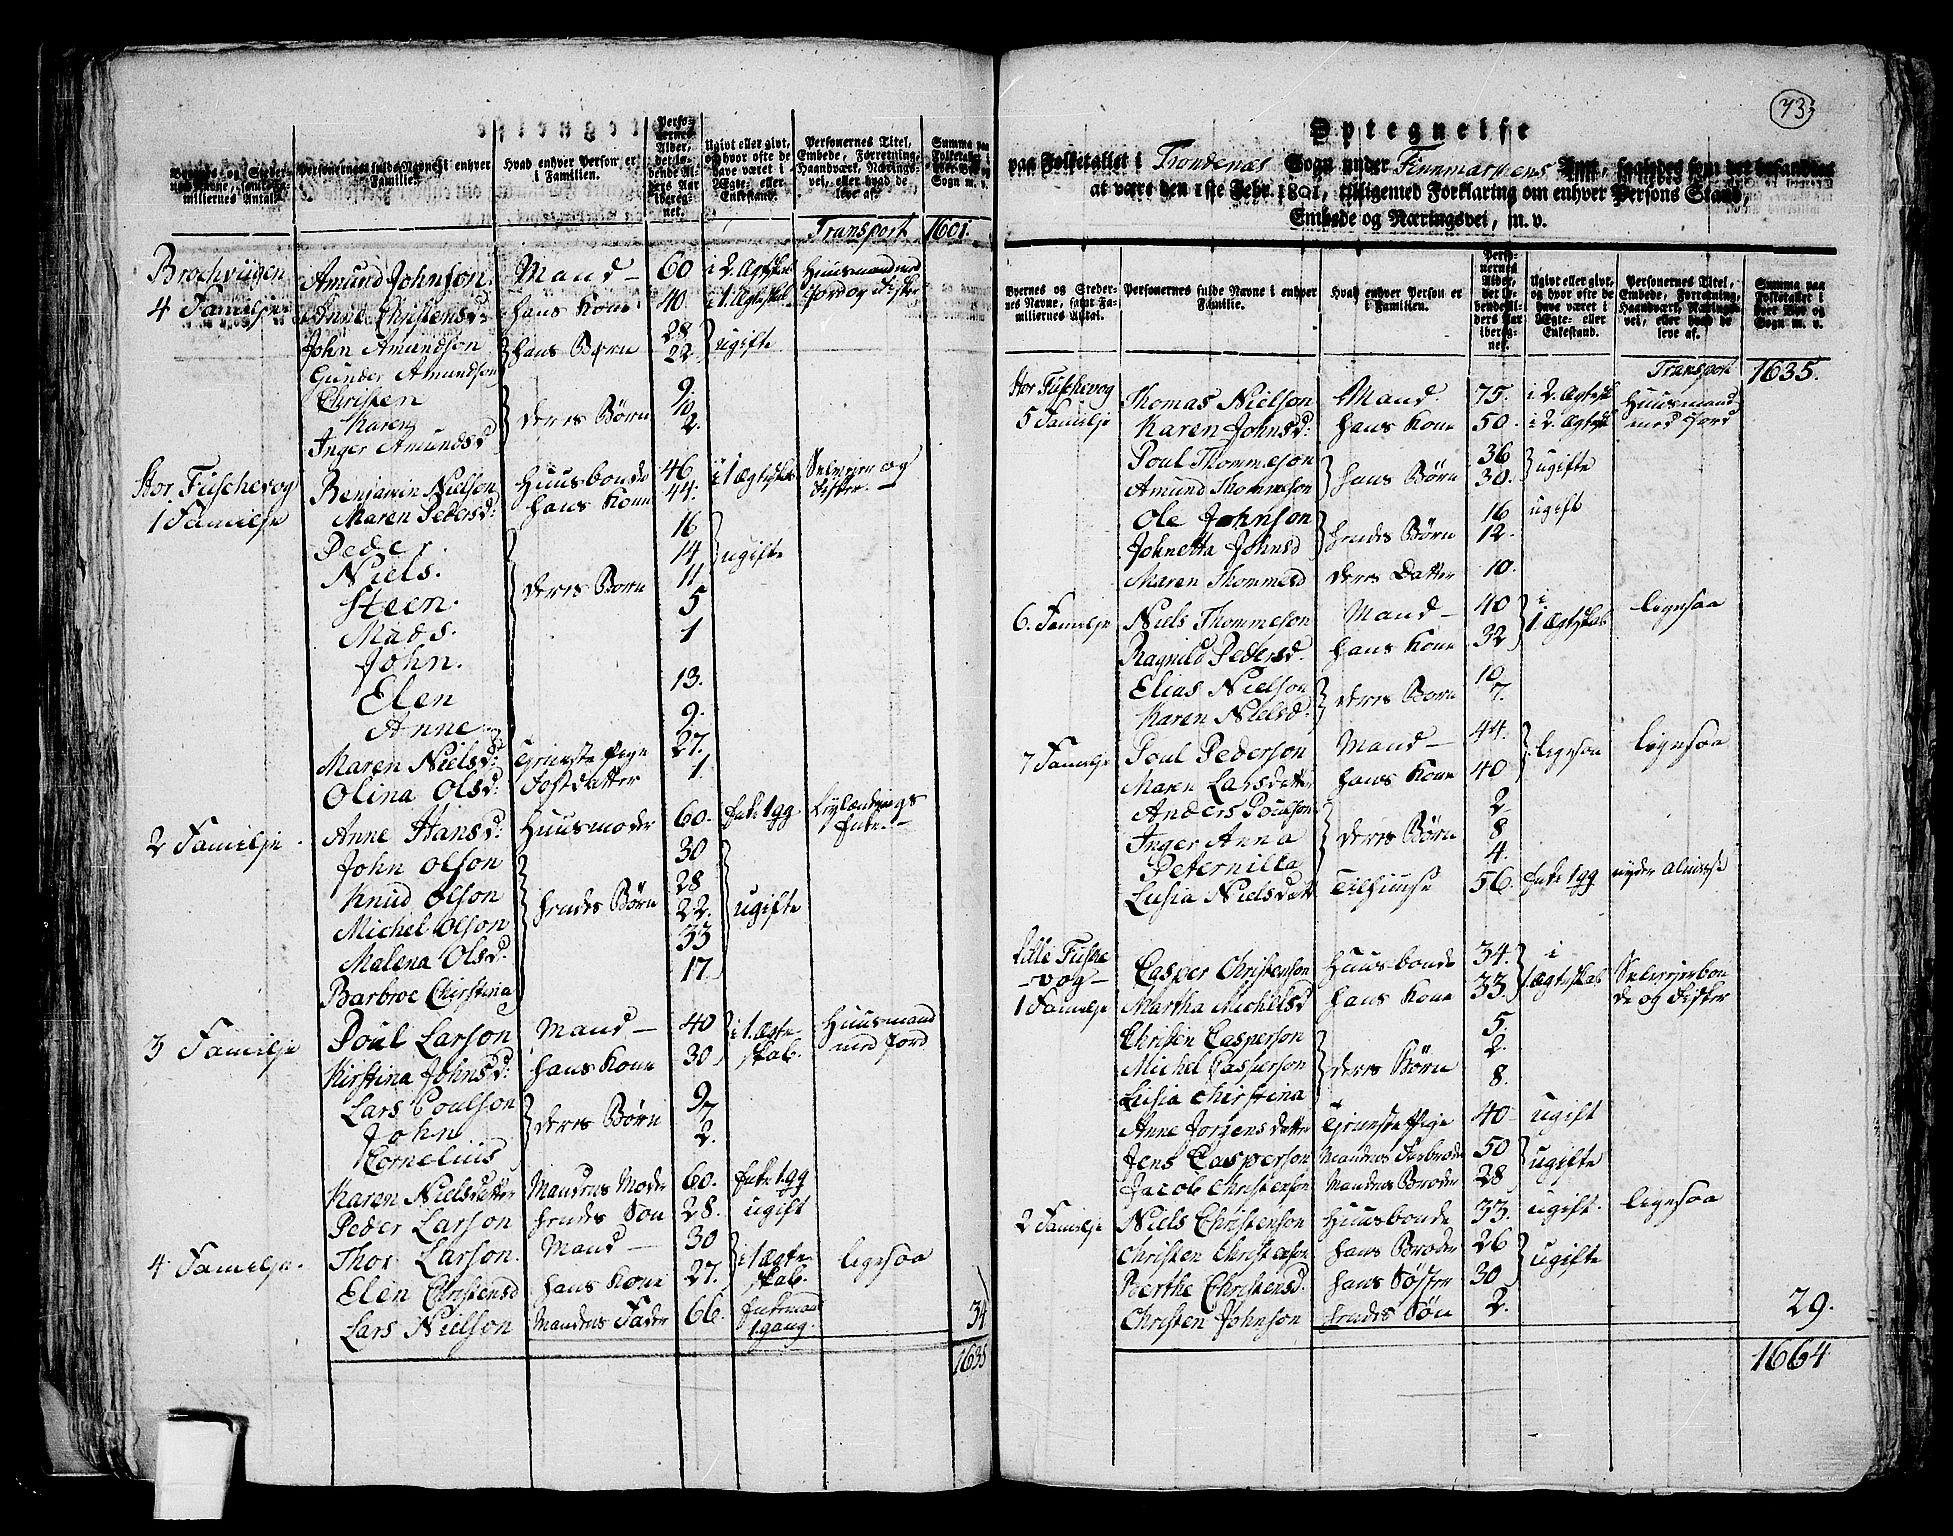 Byernes og Stedernes Navne, samt Familiernes Antal. | Personernes fulde Navne i enhver Familie. | Hvad enhver Person er i Familien. | Personernes Alder, det løbende Alders Aar iberegnet. | Ugivt eller givt, og hvor ofte de have været i Ægte- eller Enkestand. | Personernes Titel, Embede, Forretning, Haandværk, Næringsvei, eller hvad de leve af. | Summa paa Folketallet i hver Bye og Sogn m. v.
Transport 1601.
Brochviigen Amund Johnson Mand 60 i 2. Ægtesk. Huusmand med
4 Familje Anne Christensd: hans Kone 40. i 1. Ægtesk. Jord og Fisker
John Amundson hans Børn 28 ugifte
Gunder Amundson 22
Christen deres Børn 9.
Karen
Inger Amundsd 2.
Stor Fuschevog Benjamin Nielson Huusbonde 46 i 1 Ægtesk. Selveier og
1 Familje Maren Pedersd: hans Kone 44. Fisker.
Peder. deres Børn 16 ugifte
Niels. 14
Steen. 11
Mads. 5
John. 1
Elen 13.
Anne 9.
Maren Nielsd: Tieneste Pige 27.
Olina Olsd: Fostdatter 1.
2 Familje Anne Hansd: Huusmoder 60. Enke 1 gg
John Olson hendes Børn 30 ugifte
Knud Olson 28
Michel Olson 22.
Malena Olsd. 33
Barbroe Christina 17.
3 Familje Poul Larson Mand 40 i 1. Ægte- Huusmand
Kirstina Johnsd: hans Kone 30 skab. med Jord
Lars Poulson deres Børn 9
John 7
Kornelius 2.
Karen Nielsdatter Mandens Moder 60. Enke 1 gg
Peder Larson hendes Søn 28. ugift
4 Familje. Thor Larson. Mand 30 i 1 Ægte- ligesaa
Elen Christensd hans Kone 27. skab.
Lars Nielson Mandens Fader 66. Enkemand 1 gang. 34
1635
73
Optegnelse
paa Folketallet i Trondenæs Sogn under Finnmarkens Amt, saaledes som det befandtes
at være den 1ste Febr. 1801, tilligemed Forklaring om enhver Persons Stand,
Embede og Næringsvei, m. v.
Byernes og Stedernes Navne, samt Familiernes Antal. | Personernes fulde Navne i enhver Familie. | Hvad enhver Person er i Familien. | Personernes Alder, det løbende Alders Aar iberegnet. | Ugivt eller givt, og hvor ofte de have været i Ægte- eller Enkestand. | Personernes Titel, Embede, Forretning, Haandværk, Næringsvei, eller hvad de leve af. | Summa paa Folketallet i hver Bye og Sogn m. v.
Transport 1635.
Stor Fuschevog Thomas Nielson Mand 75. i 2. Ægtesk Huusmand
5 Familje Karen Johnsd: hans Kone 50. i 2. Ægtesk med Jord
Poul Thommeson hans Børn 36 ugifte
Amund Thommeson 30.
Ole Johnson hendes Børn 16 ugift
Johnetta Johnsd 12.
Maren Thommesd deres Datter 10.
6. Familje Niels Thommeson Mand 40 i ligesaa
Ragnild Pedersd. hans Kone 32 1 Ægteskab
Elias Nielson deres Børn 10
Karen Nielsd. 7.
7 Familje Poul Pederson Mand 44. ligesaa ligesaa
Maren Larsdatter hans Kone 40
Anders Poulson deres Børn 2.
Inger Anna 8
Peternilla 4.
Lusia Nielsdatt Tilhuuse 56. Enke 1 gg nyder Almisse
Lille Fuschevog Casper Christenson Huusbonde 34. i Selveierbon
1 Familje Martha Michelsd hans Kone 33. 1 Ægteskab de og Fisker
Christen Casperson deres Børn 5.
Michel Casperson 2.
Lusia Christina 8.
Anne Jorgensdatter Tieneste Pige 40 ugift
Jens Casperson Mandens Farbroder 50 ugifte
Jacob Christenson Mandens Broder 28
2 Familje Niels Christenson Huusbonde 33. ugift. ligesaa
Christen Christenson hans Broder 26 ugifte
Berthe Christensd. hans Søster 30
Christen Johnson hendes Søn 2. 29.
1664